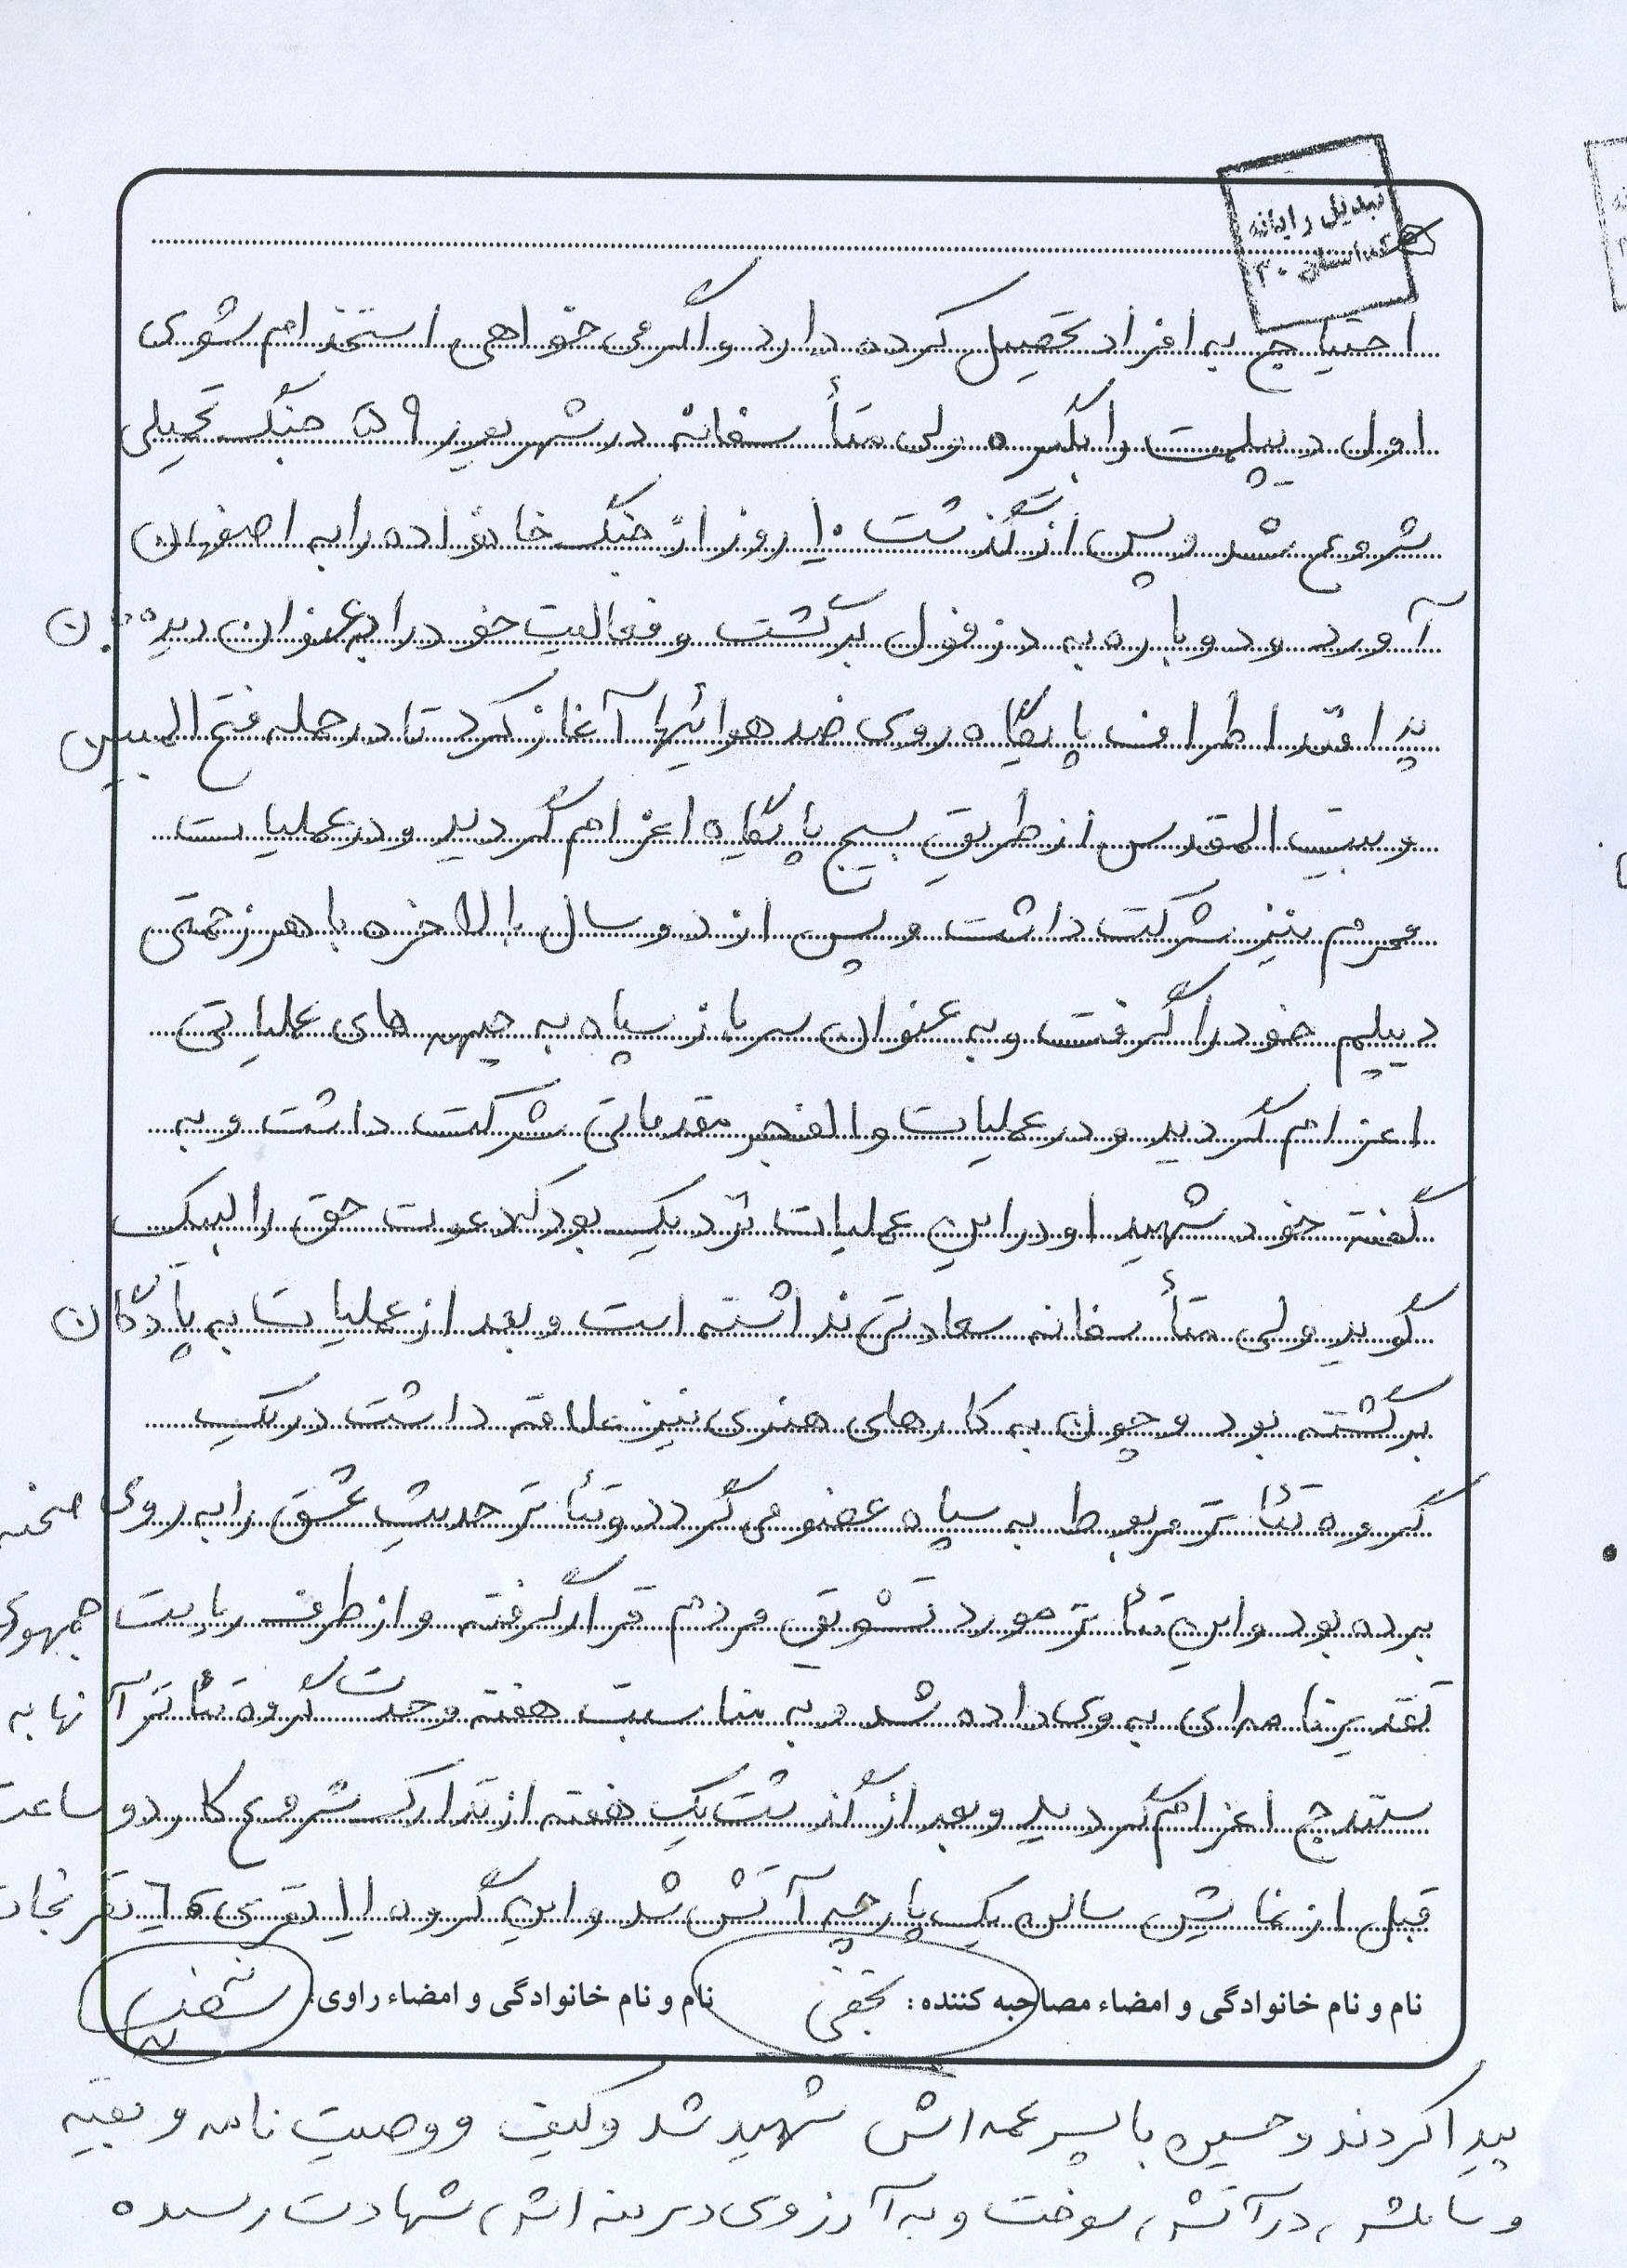 تبدیل رایانه
استان
احتیاج به افراد تحصیل کرده دارد و اگر می خواهی استخدام شوی
اول دیپلمت را بگیر ولی متأسفانه در شهریور ۵۹ جنگ تحمیلی
شروع شد و پس از گذشت ۱۰ روز از جنگ خانواده را به اصفهان
آورد و دوباره به دزفول برگشت و فعالیت خود را به عنوان دیده بان
پدافند اطراف پایگاه روی ضد هوائیها آغاز کرد تا در حمله فتح المبین
و بیت المقدس از طریق بسیج پایگاه اعزام گردید و در عملیات
محرم نیز شرکت داشت و پس از دو سال بالاخره با هر زحمتی
دیپلم خود را گرفت و به عنوان سرباز سپاه به جبهه های عملیاتی
اعزام گردید و در عملیات والفجر مقدماتی شرکت داشت و به
گفته خود شهید او در این عملیات نزدیک بود که دعوت حق را لبیک
گوید ولی متأسفانه سعادتی نداشته است و بعد از عملیات به پادگان
برگشته بود و چون به کارهای هنری نیز علاقه داشت در یک
گروه تئاتر مربوط به سپاه عضو می گردد و تئاتر حدیث عشق را به روی صحنه
برده بود و این تئاتر مورد تشویق مردم قرار گرفته و از طرف ریاست جمهوری
تقدیرنامه ای به وی داده شد و به مناسبت هفته وحدت گروه تئاتر آنها به
سنندج اعزام گردید و بعد از گذشت یک هفته از تدارک شروع کار دو ساعت
قبل از نمایش سالن یک پارچه آتش شد و این گروه ۱۱ نفری نفر نجات
نام و نام خانوادگی و امضاء مصاحبه کننده: نام و نام خانوادگی و امضاء راوی:
پیدا کردند و حسین با پسر عمه اش شهید شد و کیف و وصیت نامه و بقیه
وسایلش در آتش سوخت و به آرزوی دیرینه اش شهادت رسیده